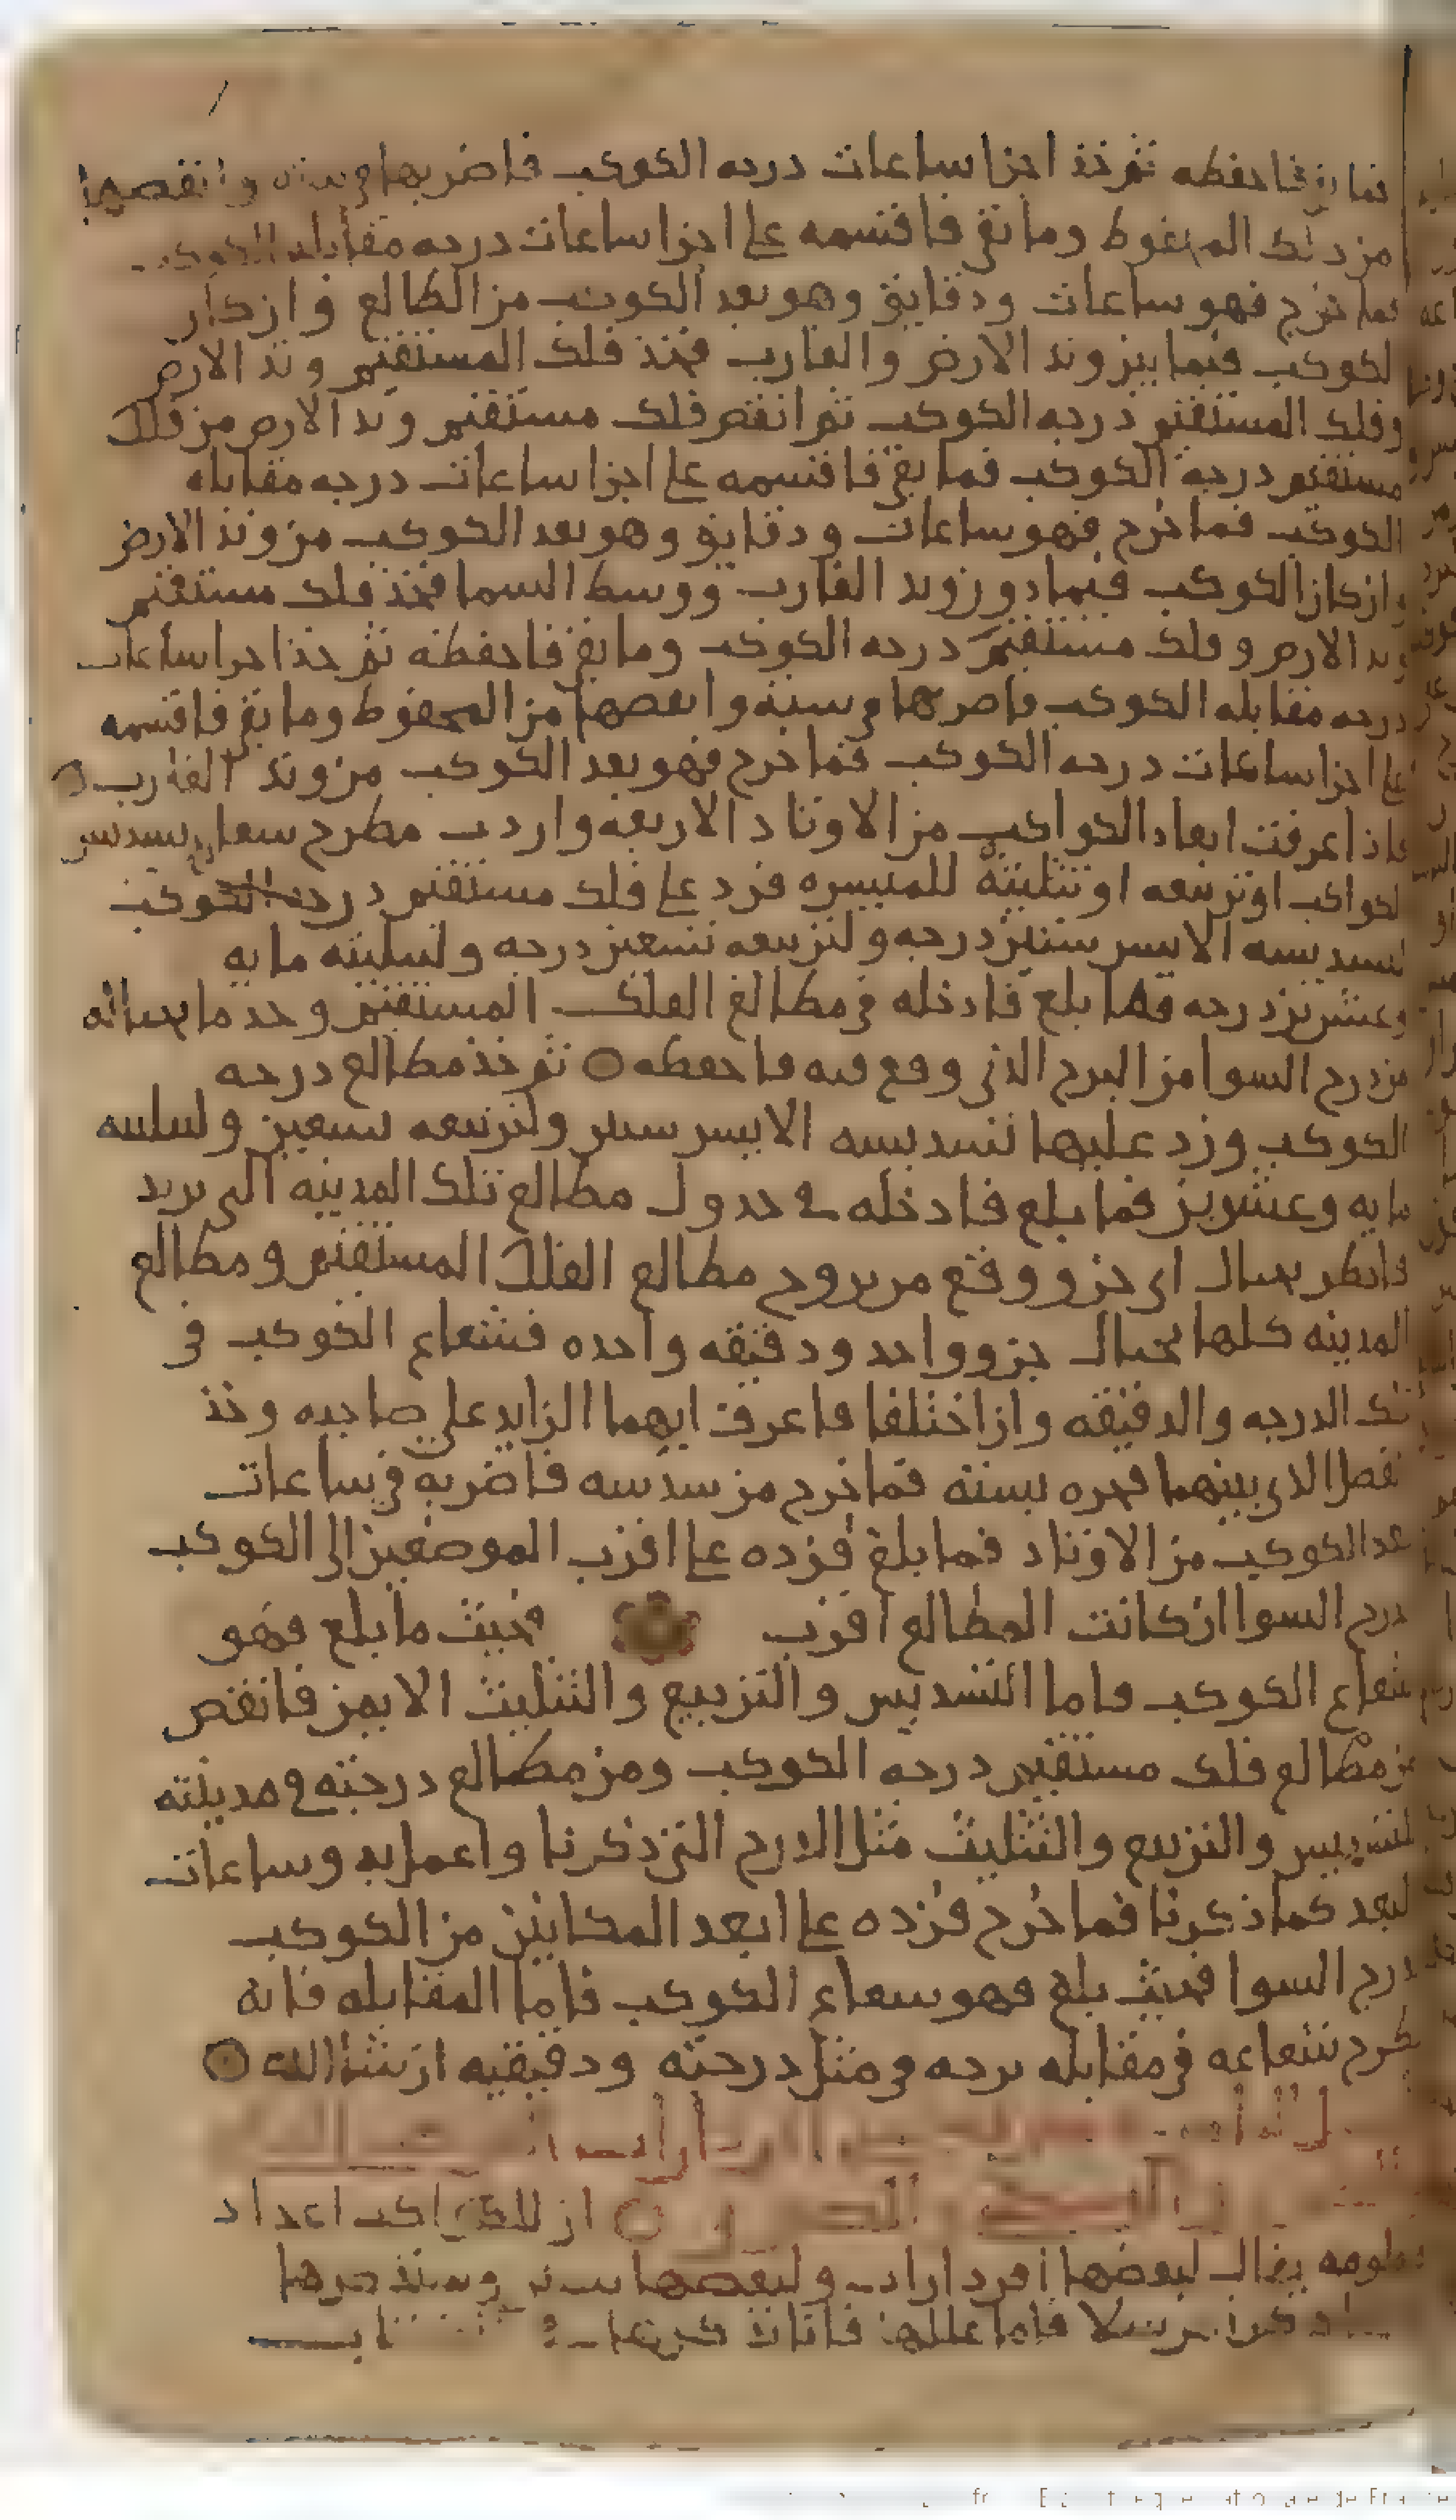 فما بقي فاحفظه ثم خذ اجزا ساعات درجه الكوكب فاضربها في سته وانقصها
من ذلك المحفوظ وما بقي فاقسمه على اجزا ساعات درجه مقابله الكوكب
فما خرج فهو ساعات ودقايق وهو بعد الكوكب من الطالع وان كان
الكوكب فيما بين وتد الارض والغارب فخذ فلك المستقيم وتد الارض
وفلك المستقيم درجه الكوكب ثم انقص فلك مستقيم وتد الارض من فلك
مستقيم درجه الكوكب فما بقي فاقسمه على اجزا ساعات درجه مقابله
الكوكب فما خرج فهو ساعات ودقايق وهو بعد الكوكب من وتد الارض
وان كان الكوكب فيما دون وتد الغارب ووسط السما فخذ فلك مستقيم
وتد الارض وفلك مستقيم درجه الكوكب وما بقي فاحفظه ثم خذ اجزا ساعات
درجه مقابله الكوكب فاضربها في سته وانقصها من المحفوظ وما بقي فاقسمه
على اجزا ساعات درجه الكوكب فما خرج فهو بعد الكوكب من وتد الغارب
فاذا عرفت ابعاد الكواكب من الاوتاد الاربعه واردت مطرح شعاع تسديس
الكواكب او تربيعه او تثليثه للميسره فزد على فلك مستقيم درجه الكوكب
لتسديسه الايسر ستين درجه ولتربيعه تسعين درجه ولتثليثه مايه
وعشرين درجه فما بلغ فادخله في مطالع الفلك المستقيم وخذ ما بحياله
من درج السوا من البرج الذي وقع فيه فاحفظه ثم خذ مطالع درجه
الكوكب وزد عليها لتسديسه الايسر ستين ولتربيعه تسعين ولتثليثه
مايه وعشرين فما بلغ فادخله في جدول مطالع تلك المدينه التي تريد
فانظر بحيال اي جزو وقع من بروج مطالع الفلك المستقيم ومطالع
المدينه كلها بحيال جزو واحد ودقيقه واحده فشعاع الكوكب في
تلك الدرجه والدقيقه وان اختلفا فاعرف ايهما الزايد على صاحبه وخذ
الفضل الذي بينهما فجزه بسته فما خرج من سدسه فاضربه في ساعات
بعد الكوكب من الاوتاد فما بلغ فزده على اقرب الموضعين الى الكوكب
درج السوا ان كانت المطالع اقرب فحيث ما بلغ فهو
شعاع الكوكب فاما التسديس والتربيع والتثليث الايمن فانقص
من مطالع فلك مستقيم درجه الكوكب ومن مطالع درجته في مدينته
للتسديس والتربيع والتثليث مثل الدرج التي ذكرنا واعمل به وساعات
البعد كما ذكرنا فما خرج فزده على ابعد المكانين من الكوكب
درج السوا فحيث بلغ فهو شعاع الكوكب فاما المقابله فانه
يطرح شعاعه في مقابله برجه في مثل درجته ودقيقيه ان شا الله
ان للكواكب اعداد
معلومه يقال لبعضها افردارات ولبعضها
فاما عللها فانا